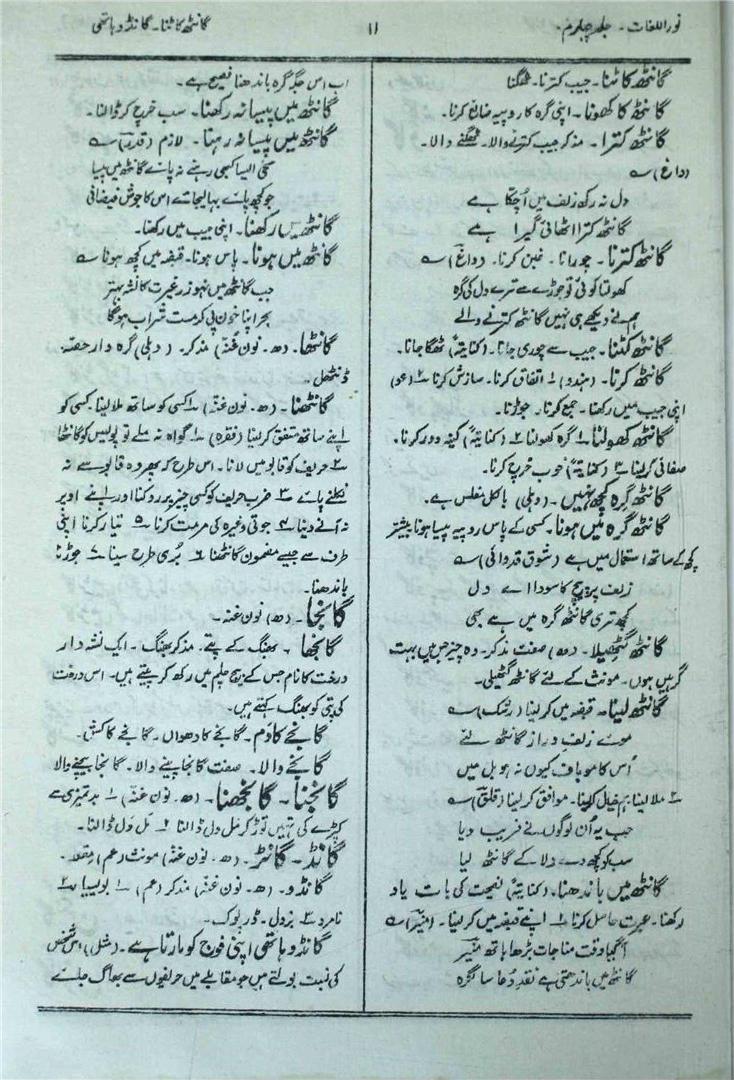 نور اللغات۔ جلد چہارم۔
۱۱
گانٹھ کاٹنا۔ گانڈو ہاتھی
گانٹھ کاٹنا۔ جیب کترنا۔ ٹھگنا
گانٹھ کا کھونا۔ اپنی گرہ کا روپیہ ضائع کرنا۔
گانٹھ کترا۔ مذکر جیب کترنے والا۔ ٹھگنے والا۔
(داغ) ؎
دل نہ رکھ زلف میں اُچکّا ہے
گانٹھ کترا اٹھائی گیرا ہے
گانٹھ کترنا۔ چورانا۔ غبن کرنا۔ (داغ) ؎
کھولتا کوئی تو جوڑے سے ترے دل کی گرہ
ہم نے دیکھے ہی نہیں گانٹھ کترنے والے
گانٹھ کٹنا۔ جیب سے چوری جانا۔ (کنایتہً) ٹھگا جانا۔
گانٹھ کرنا۔ (ہندو) ۱ اتفاق کرنا۔ سازش کرنا ۲ (عو)
اپنی جیب میں رکھنا۔ جمع کرنا۔ جوڑنا۔
گانٹھ کھولنا۔ ۱ گرہ کھولنا ۲ (کنایتہً) کینہ دور کرنا۔
صفائی کرلینا ۳ (کنایتہً) خوب خرچ کرنا۔
گانٹھ گرہ کچھ نہیں۔ (دہلی) بالکل مفلس ہے۔
گانٹھ گرہ میں ہونا۔ کسی کے پاس روپیہ پیسا ہونا بیشتر
کچھ کے ساتھ استعمال میں ہے (شوق قدوائی) ؎
زلف پر پیچ کا سودا اے دل
کچھ تری گانٹھ گرہ میں ہے بھی
گانٹھ گٹھیلا۔ (ھ) صفت مذکر۔ وہ چیز جس میں بہت
گرہیں ہوں۔ مونث کے لئے گانٹھ گٹھیلی۔
گانٹھ لینا۔ قبضہ میں کرلینا (رشک) ؎
موئے زلف دراز گانٹھ لئے
اُس کا موباف کیوں نہ ہو بل میں
۲ ملا لینا ہم خیال کرلینا۔ موافق کرلینا (قلق) ؎
جب یہ اُن لوگوں نے فریب دیا
سب کو کچھ دے دلا کے گانٹھ لیا
گانٹھ میں باندھنا۔ (کنایتہً) نصیحت کی بات یاد
رکھنا۔ عبرت حاصل کرنا ۲ اپنے قبضہ میں کرلینا۔ (منیر) ؎
آگیا وقت مناجات بڑھا ہاتھ منیر
گانٹھ میں باندھتی ہے نقد دعا سا گرہ
اب اس جگہ گرہ باندھنا فصیح ہے۔
گانٹھ میں پیسا نہ رکھنا۔ سب خرچ کر ڈالنا۔
گانٹھ میں پیسا نہ رہنا۔ لازم (قدر) ؎
سخی ایسا کبھی رہنے نہ پائے گانٹھ میں پیسا
جو کچھ پائے بہا لیجائے اس کا جوش فیضانی
گانٹھ میں رکھنا۔ اپنی جیب میں رکھنا۔
گانٹھ میں ہونا۔ پاس ہونا۔ قبضہ میں کچھ ہونا ؎
جب گانٹھ میں نہو زر غیرت کا نشہ بہتر
اپنا خون پی کر مست شراب ہوگا
گانٹھا۔ (ھ۔ نون غنّہ) مذکر۔ (دہلی) گرہ دار حصّہ۔
ڈنٹھل۔
گانٹھنا۔ (ھ۔ نون غنّہ) ۱ کسی کو ساتھ ملا لینا۔ کسی کو
اپنے ساتھ متفق کرلینا (فقرہ) گواہ نہ ملے تو پولیس کو گانٹھا
۲ حریف کو قابو میں لانا۔ اس طرح کہ پھر وہ قابو سے نہ
نکلنے پائے ۳ ضرب حریف کو کسی چیز پر روکنا اور اپنے اوپر
نہ آنے دینا ۴ جوتی وغیرہ کی مرمت کرنا ۵ تیار کرنا اپنی
طرف سے جیسے مضمون گانٹھنا ۶ بُری طرح سینا ۷ جوڑنا
باندھنا۔
گانجا۔ (ھ) نون غنّہ۔
گانجھا۔ بھنگ کے پتے۔ مذکر بھنگ۔ ایک نشہ دار
درخت کا نام جس کے بیج چلم میں رکھ کر پیتے ہیں۔ اس درخت
کی پتی کو بھنگ کہتے ہیں۔
گانجے کا دم۔ گانجے کا دھواں۔ گانجے کا کش۔
گانجے والا۔ صفت گانجا پینے والا۔ گانجا بیچنے والا
گانجنا۔ گانجھنا۔ (ھ۔ نون غنّہ) ۱ بدتمیزی سے
کپڑے کی تہیں توڑ کر مل دل ڈالنا ۲ مل دل ڈالنا۔
گانڈ۔ گانڑ۔ (ھ۔ نون غنّہ) مونث (عم) مقعد۔
گانڈو۔ (ھ۔ نون غنّہ) مذکر (عم) ۱ بوبسیا ۲
نامرد ۳ بزدل۔ ڈرپوک۔
گانڈو ہاتھی اپنی فوج کو مارتا ہے۔ (مثل) اس شخص
کی نسبت بولتے ہیں جو مقابلے میں حریفوں سے بھاگ جائے